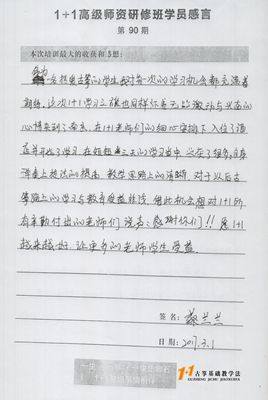 1+1高级师资研修班学员感言
第 90 期
本次培训最大的收获和感想:
身为古筝老师的学生我对每一次的学习机会都充满着
期待,这次1+1学习之旅也同样怀着无比激动与兴奋的
心情来到了南京,在1+1老师们的细心安排下入住了酒
店并开始了学习,在短短三天的学习当中,收获了很多,自身
课堂上技法的提高,教学思路上的清晰,对于以后古
筝路上的学习与教育受益匪浅,借此机会想对1+1所
有辛勤付出的老师们说声:感谢你们!!愿1+1
越来越好,让更多的老师学生受益.
签名: 蔡兰兰
日期: 2017.3.1
1+1古筝基础教学法
GUZHENG JICHU JIAOXUEFA